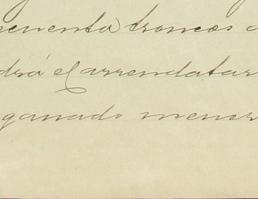 cuenta troncos
drá el arrendatar
ganado menor